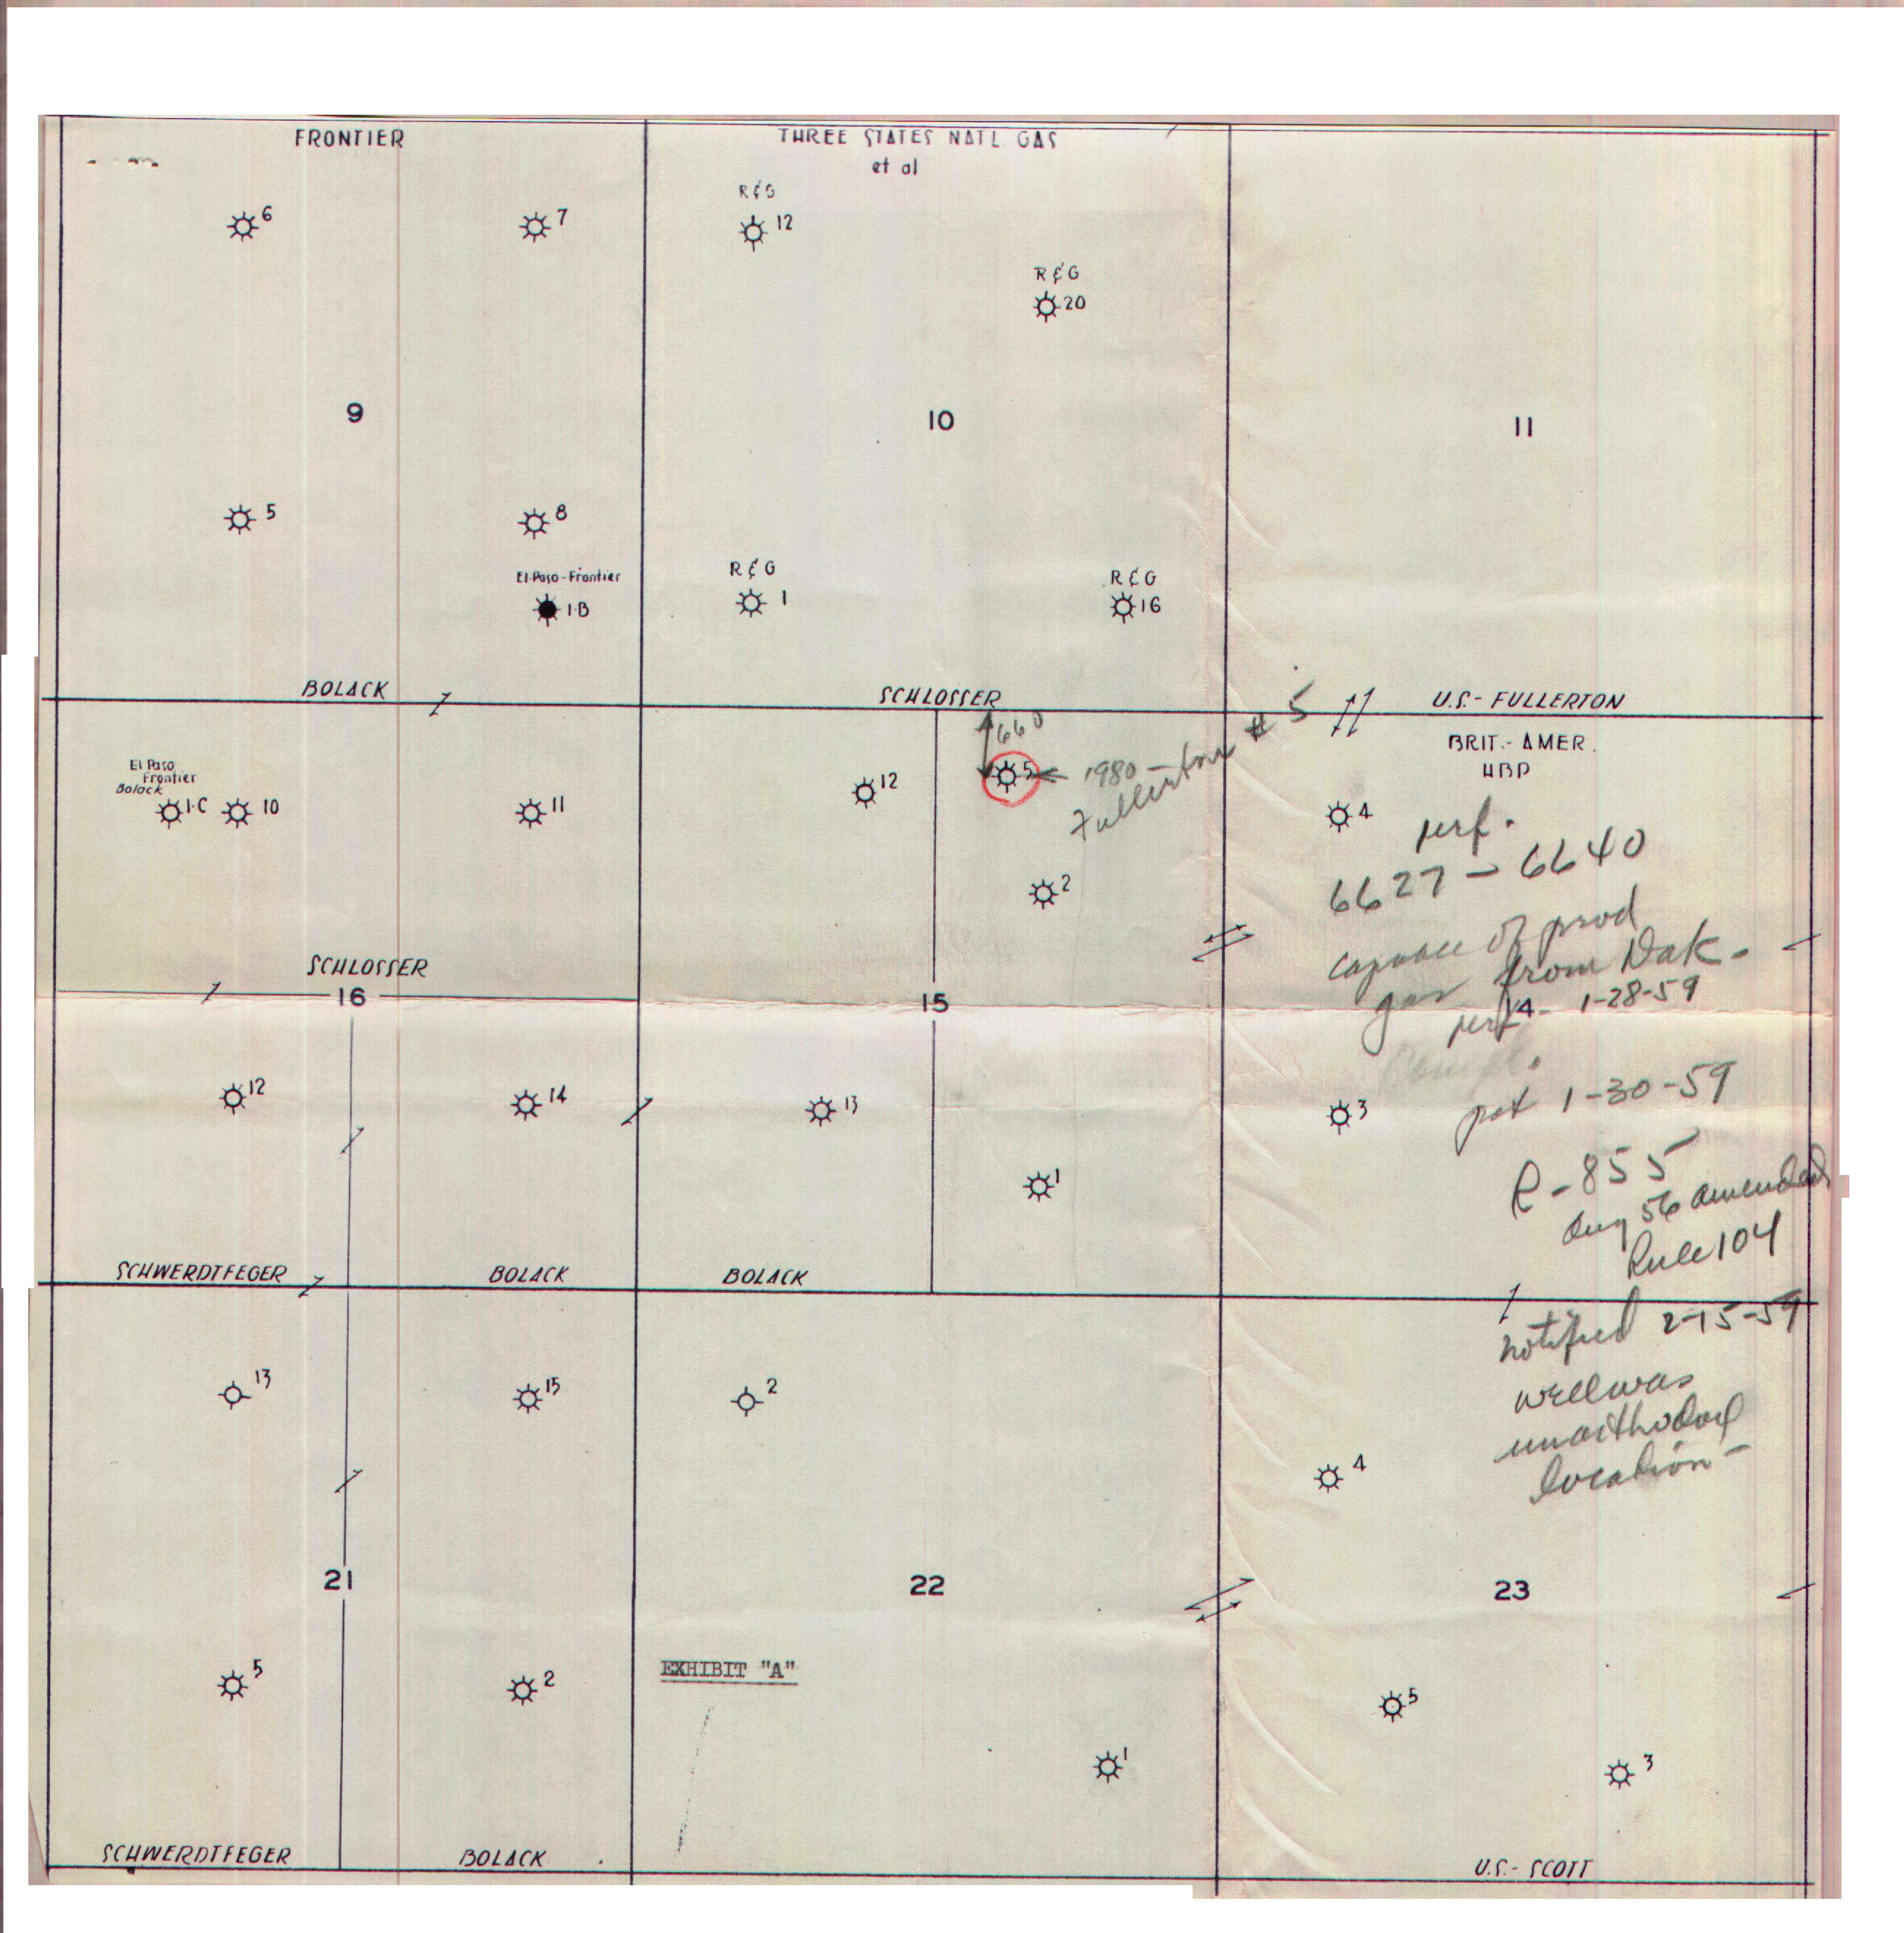 FRONTIER
THREE STATES NATL. GAS
et al
6
7
R & G
12
R & G
20
9
10
11
5
8
El Paso - Frontier
1-B
R & G
1
R & G
16
BOLACK
SCHLOSSER
U.S. - FULLERTON
660
5
1980 -
Fullerton # 5
BRIT. - AMER.
HBP
El Paso
Frontier
Bolack
1-C
10
11
12
2
4
perf.
6627 - 6640
capable of prod
gas from Dak -
perf - 1-28-59
Compl.
pot 1-30-59
SCHLOSSER
16
15
14
12
14
13
1
3
R-855
Aug 56 amended
Rule 104
SCHWERDTFEGER
BOLACK
BOLACK
notified 2-15-59
well was
unorthodox
location -
13
15
2
4
21
22
23
5
2
EXHIBIT "A"
1
5
3
SCHWERDTFEGER
BOLACK
U.S. - SCOTT